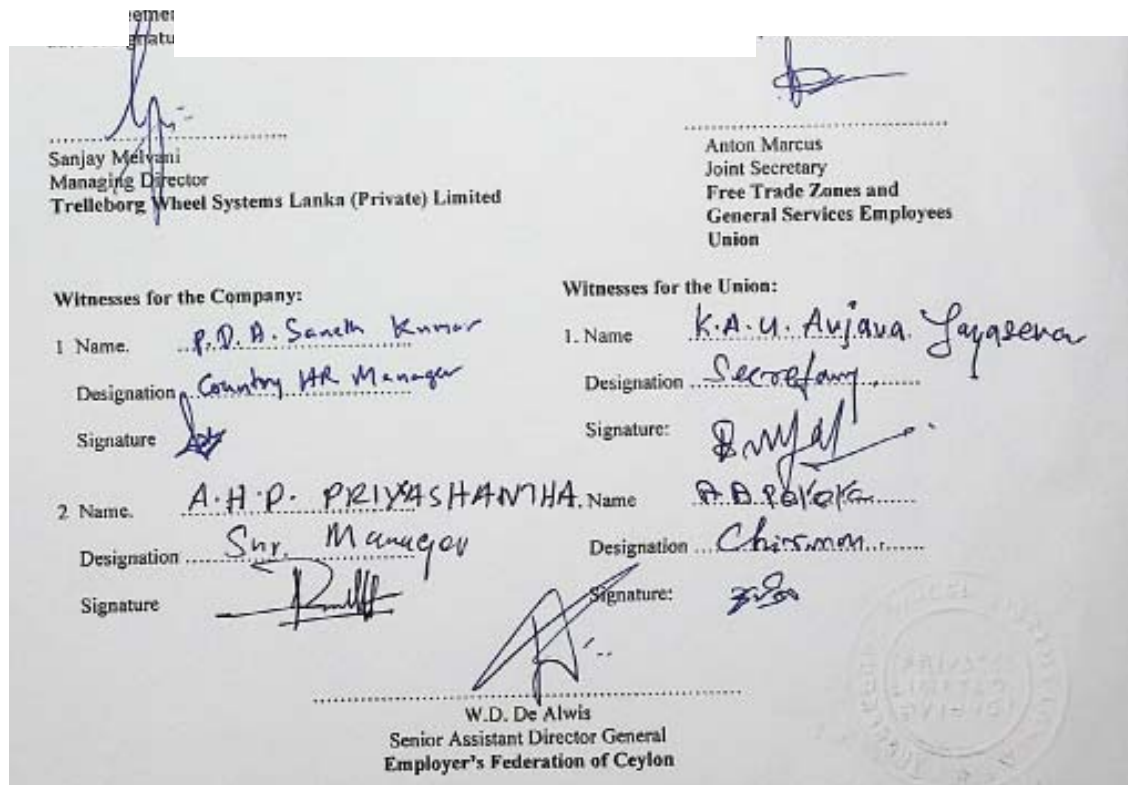 Sanjay Melvani
Managing Director
Trelleborg Wheel Systems Lanka (Private) Limited
Anton Marcus
Joint Secretary
Free Trade Zones and
General Services Employees
Union
Witnesses for the Company:
1 Name. P.D.A. Saneth Kumar
Designation Country HR Manager
Signature
2 Name. A.H.P. PRIYASHANTHA
Designation Snr. Manager
Signature
Witnesses for the Union:
1. Name K.A.U. Anjana Jayasena
Designation Secretary
Signature:
Name
Designation Chirmon
Signature:
W.D. De Alwis
Senior Assistant Director General
Employer's Federation of Ceylon